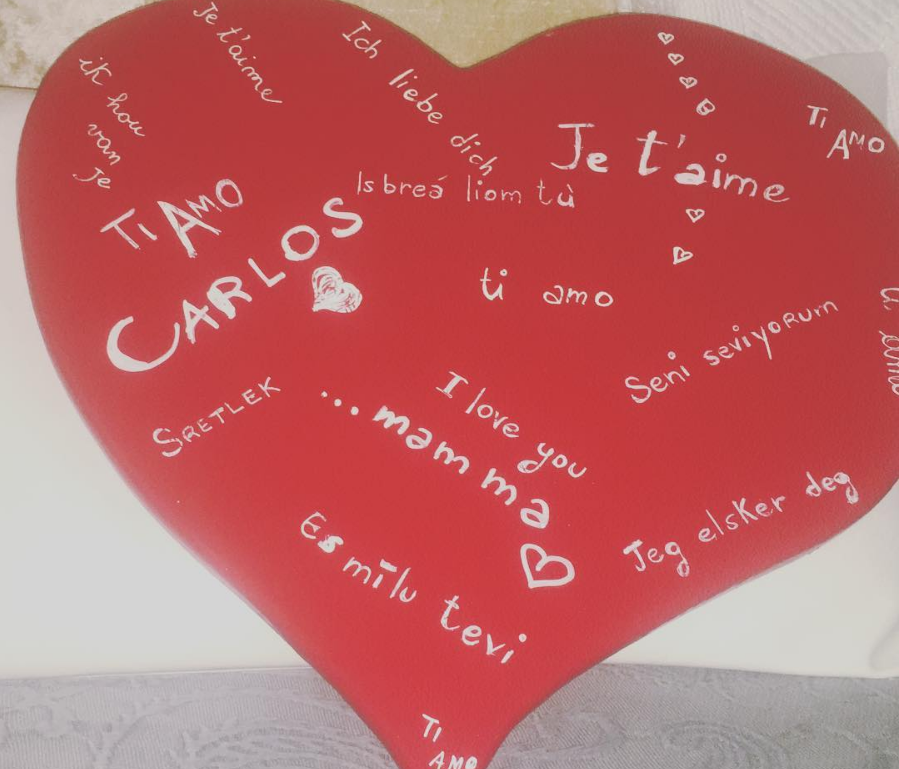 Je t'aime
Ich liebe dich
ik hou
van
Je
Je t'aime
TI
AMO
Is breá liom tù
TI AMO
CARLOS
ti amo
Seni seviyorum
I love you
SRETLEK
... mamma
Jeg elsker deg
Es mīlu tevi
TI
AMO